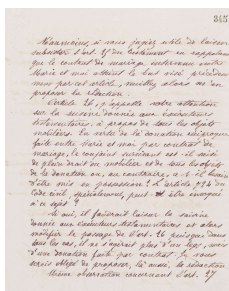 345
Néanmoins si vous jugez utile de laisser
subsister l'art. 27 du testament en rappelant
que le contrat de mariage intervenu entre
Marie et moi atteint le but visé précédem
ment par cet article, veuillez alors m'en
proposer la rédaction.
L'article 26, appelle votre attention
sur la saisine donnée aux exécuteurs
testamentaires, à propos de tous les objets
mobiliers. En vertu de la donation réciproque
faite entre Marie et moi par contrat de
mariage, le conjoint survivant est-il saisi
de plein droit du mobilier et de tous les objets
de la donation ou, au contraire, a-t-il besoin
d'être mis en possession? L'article 724 du
Code civil, spécialement, peut-il être invoqué
à ce sujet?
Si oui, il faudrait laisser la saisine
donnée aux exécuteurs testamentaires et alors
modifier le passage de l'art. 26 puisque dans
tous les cas, il ne s'agirait plus d'un legs, mais
d'une donation faite par contrat. Je vous
serais obligé de proposer, ici aussi, la rédaction
Même observation concernant l'art. 27